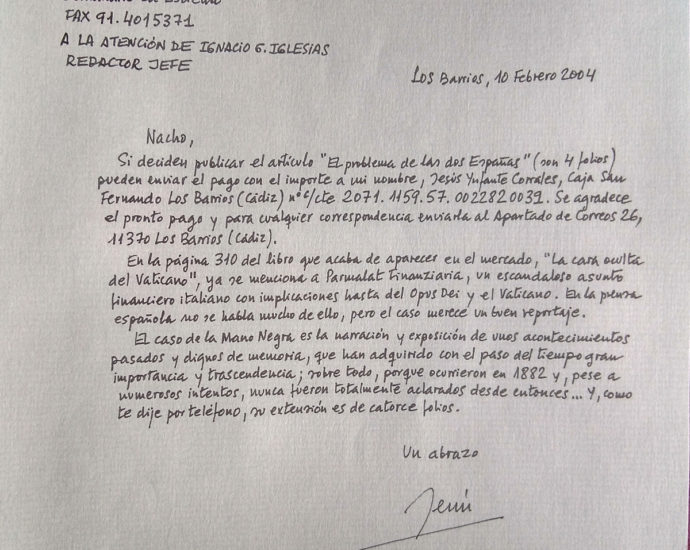 FAX 91.4015371
A LA ATENCIÓN DE IGNACIO G. IGLESIAS
REDACTOR JEFE
Los Barrios, 10 Febrero 2004
Nacho,
Si deciden publicar el artículo "El problema de las dos Españas" (son 4 folios)
pueden enviar el pago con el importe a mi nombre, Jesús Ynfante Corrales, Caja San
Fernando Los Barrios (Cádiz) nº c/cte 2071.1159.57.0022820039. Se agradece
el pronto pago y para cualquier correspondencia enviarla al Apartado de Correos 26,
11370 Los Barrios (Cádiz).
En la página 310 del libro que acaba de aparecer en el mercado, "La cara oculta
del Vaticano", ya se menciona a Parmalat Finanziaria, un escandaloso asunto
financiero italiano con implicaciones hasta del Opus Dei y el Vaticano. En la prensa
española no se habla mucho de ello, pero el caso merece un buen reportaje.
El caso de la Mano Negra es la narración y exposición de unos acontecimientos
pasados y dignos de memoria, que han adquirido con el paso del tiempo gran
importancia y trascendencia; sobre todo, porque ocurrieron en 1882 y, pese a
numerosos intentos, nunca fueron totalmente aclarados desde entonces... Y, como
te dije por teléfono, su extensión es de catorce folios.
Un abrazo
Jesús